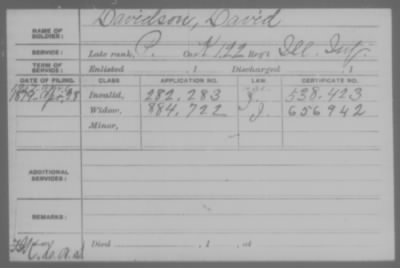 NAME OF SOLDIER: Davidson, David
SERVICE: Late rank, P. Co. K 122 Reg't Ill. Inf.
TERM OF SERVICE: Enlisted , 1 Discharged , 1
DATE OF FILING. CLASS APPLICATION NO. LAW. CERTIFICATE NO.
1879 Invalid, 282,283 538,423
Widow, 884,722 656942
Minor,
ADDITIONAL SERVICES:
REMARKS:
Died , 1 , at